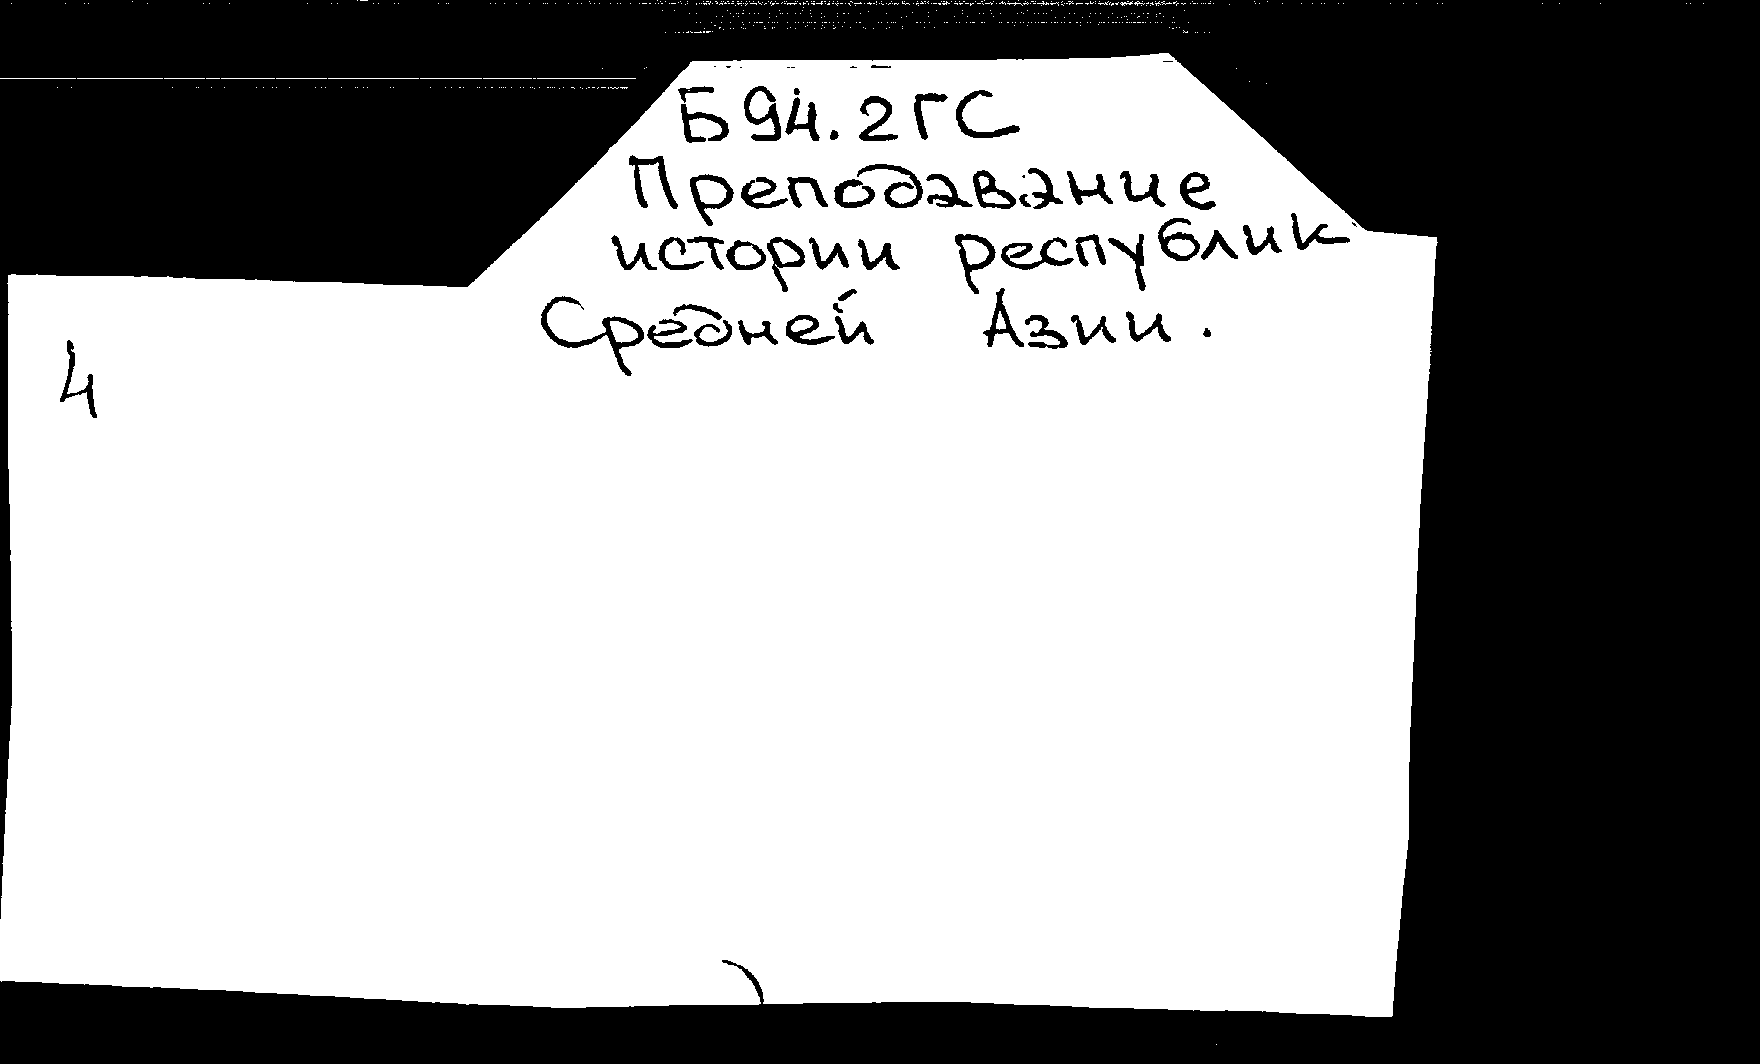 Б94.2ГС
Преподавание
истории республик
Средней Азии.
4